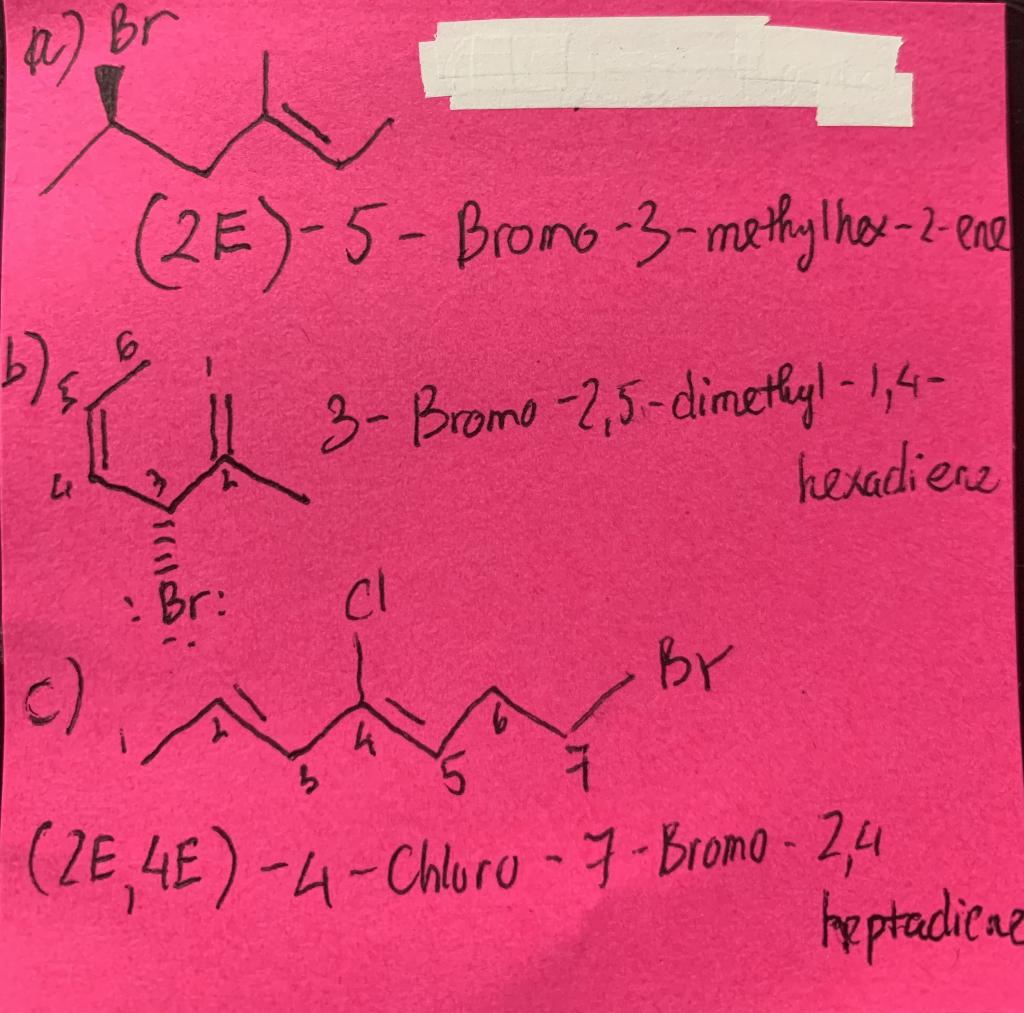 a) Br
(2E)-5-Bromo-3-methylhex-2-ene
b) 6
5
1
3-Bromo-2,5-dimethyl-1,4-
hexadiene
4 3 2
:Br:
Cl
c) Br
1 2 3 4 5 6 7
(2E,4E)-4-Chloro-7-Bromo-2,4
heptadiene